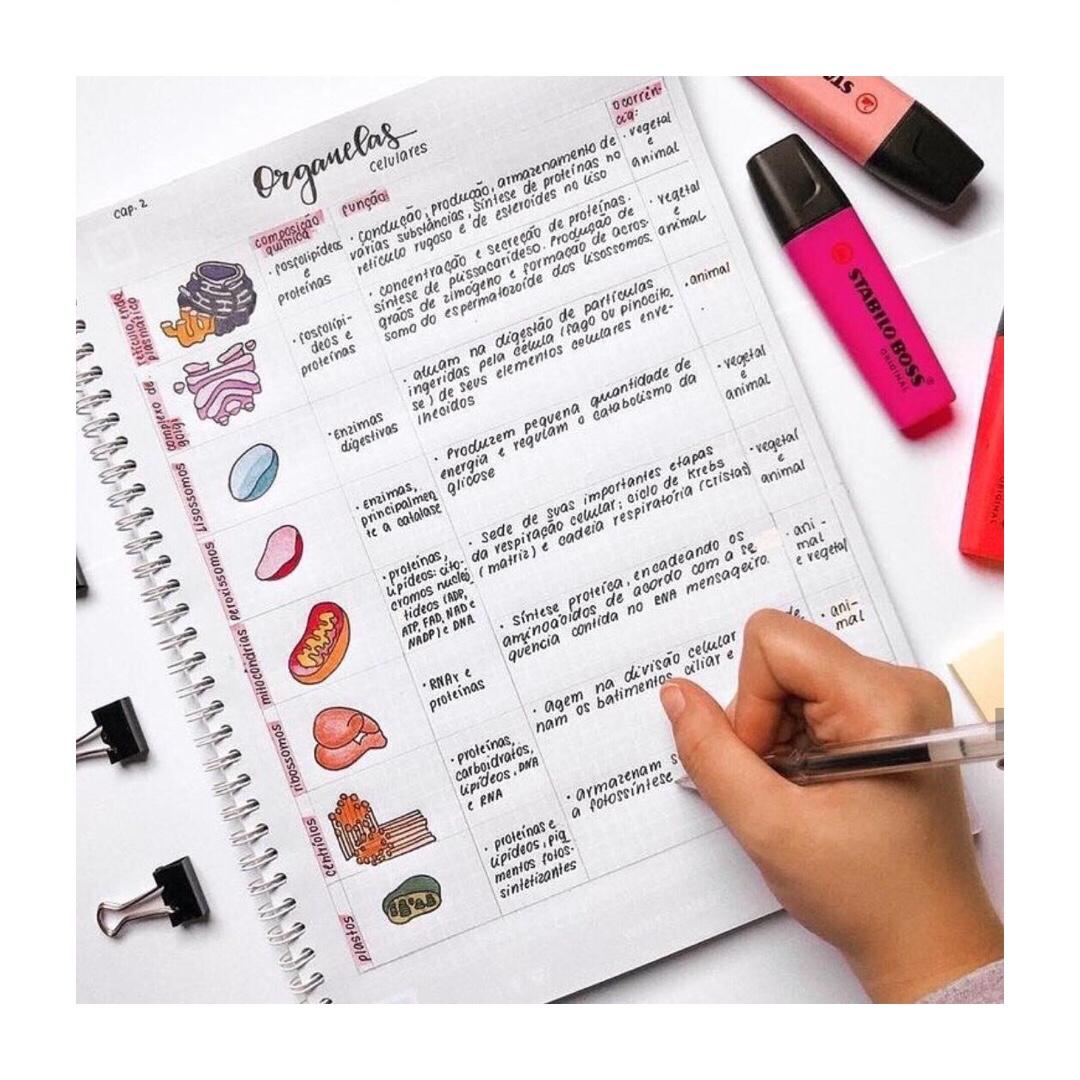 cap. 2
Organelas
celulares
composição
química
função
ocorrên-
cia:
retículo endo
plasmático
· fosfolipídeos
e
proteínas
· condução, produção, armazenamento de
várias substâncias, síntese de proteínas no
retículo rugoso e de esteroides no liso
· vegetal
e
animal
complexo de
golgi
· fosfolipí-
deos e
proteínas
· concentração e secreção de proteínas.
síntese de
produção de
grãos de zimogeno e formação de acros-
somo do espermatozoide dos lisossomos.
· vegetal
e
animal
lisossomos
· Enzimas
digestivas
· atuam na digestão de partículas
ingeridas pela célula (fago ou pinocito.
se) de seus elementos celulares enve-
lhecidos
· animal
peroxissomos
· Enzimas,
principalmen
te a catalase
· Produzem pequena quantidade de
energia e regulam o catabolismo da
glicose
· vegetal
e
animal
mitocôndrias
· proteínas,
lipídeos: cito-
cromos nucleo
tídeos (ADP,
ATP, FAD, NAD e
NADP) e DNA
· sede de suas importantes etapas
da respiração celular: ciclo de Krebs
(matriz) e cadeia respiratória (cristas)
· vegetal
e
animal
ribossomos
· RNAr e
proteínas
· síntese proteica, encadeando os
aminoácidos de acordo com a se
quência contida no RNA mensageiro.
· ani-
mal
e vegetal
centríolos
· proteínas,
carboidratos,
lipídeos, DNA
e RNA
· agem na divisão celular
nam os batimentos ciliar e
de
· ani-
mal
plastos
· proteínas e
lipídeos, pig
mentos fotos-
sintetizantes
· armazenam s
a fotossíntese
STABILO BOSS
ORIGINAL
STA
ORIGINAL